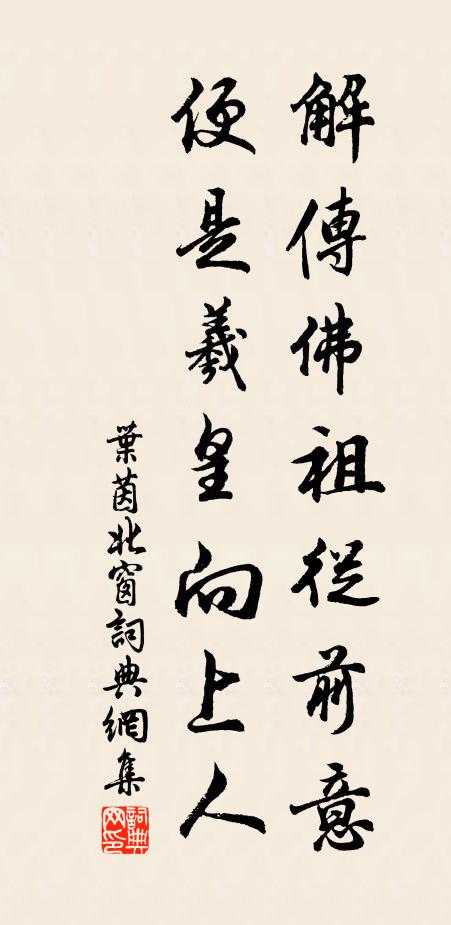 解傳佛祖從前意
便是羲皇向上人
葉茵北窗詞典網集
詞典
网印